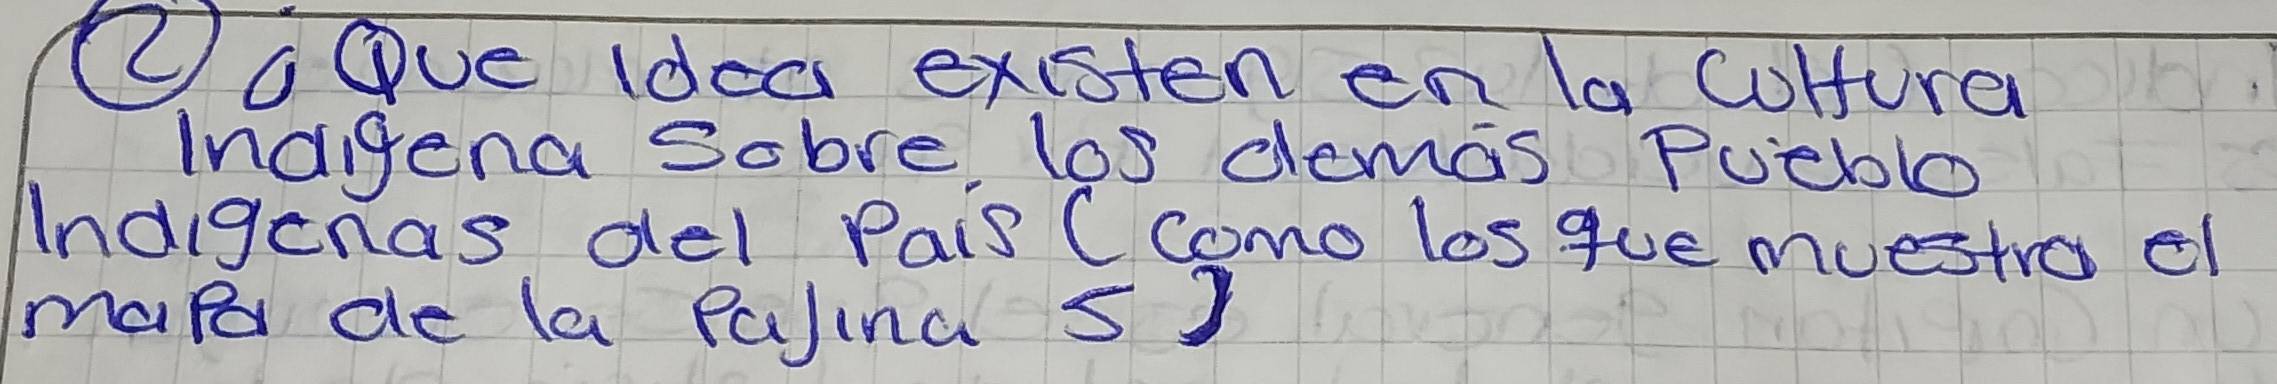 ② ¿Que Idea existen en la Cultura
Indigena Sobre los demás Pueblo
Indigenas del Pais (como los que muestra el
mapa de la Pajina 5)